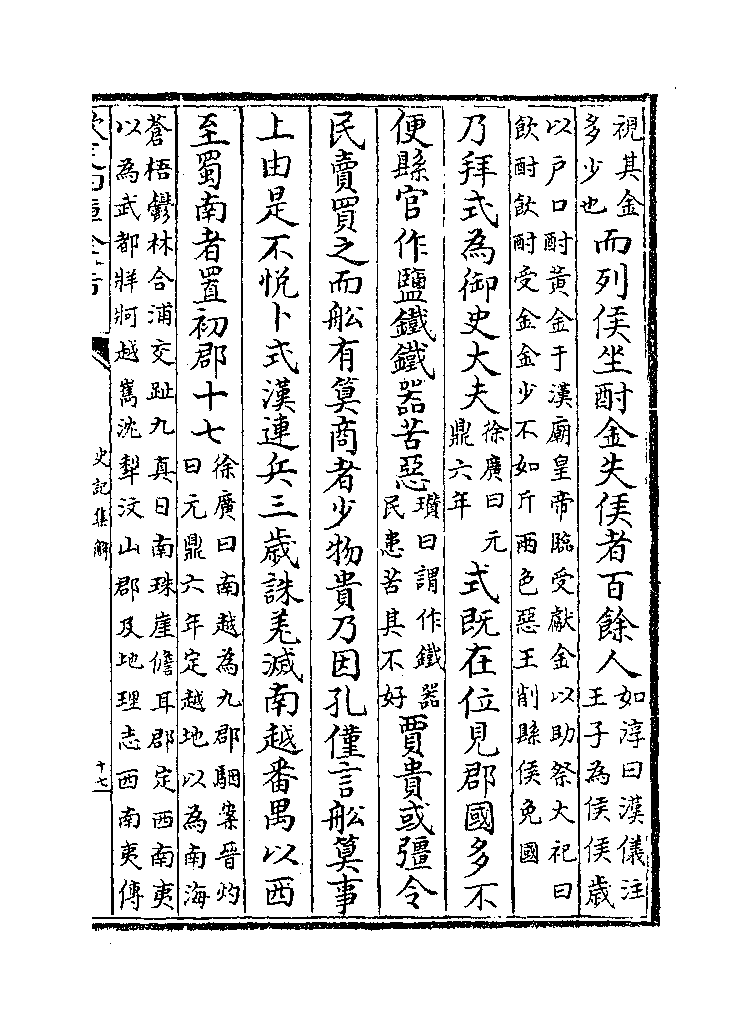 視其金多少也而列侯坐酎金失侯者百餘人如淳曰漢儀注王子為侯侯歲
以戶口酎黃金于漢廟皇帝臨受獻金以助祭大祀曰飲酎飲酎受金金少不如斤兩色惡王削縣侯免國
乃拜式為御史大夫徐廣曰元鼎六年式既在位見郡國多不
便縣官作鹽鐵鐵器苦惡瓚曰謂作鐵器民患苦其不好賈貴或彊令
民賣買之而船有算商者少物貴乃因孔僅言船算事
上由是不悅卜式漢連兵三歲誅羌滅南越番禺以西
至蜀南者置初郡十七徐廣曰南越為九郡駰案晉灼曰元鼎六年定越地以為南海
蒼梧鬱林合浦交趾九真日南珠崖儋耳郡定西南夷以為武都牂牁越嶲沈犂汶山郡及地理志西南夷傳
史記集解
十七